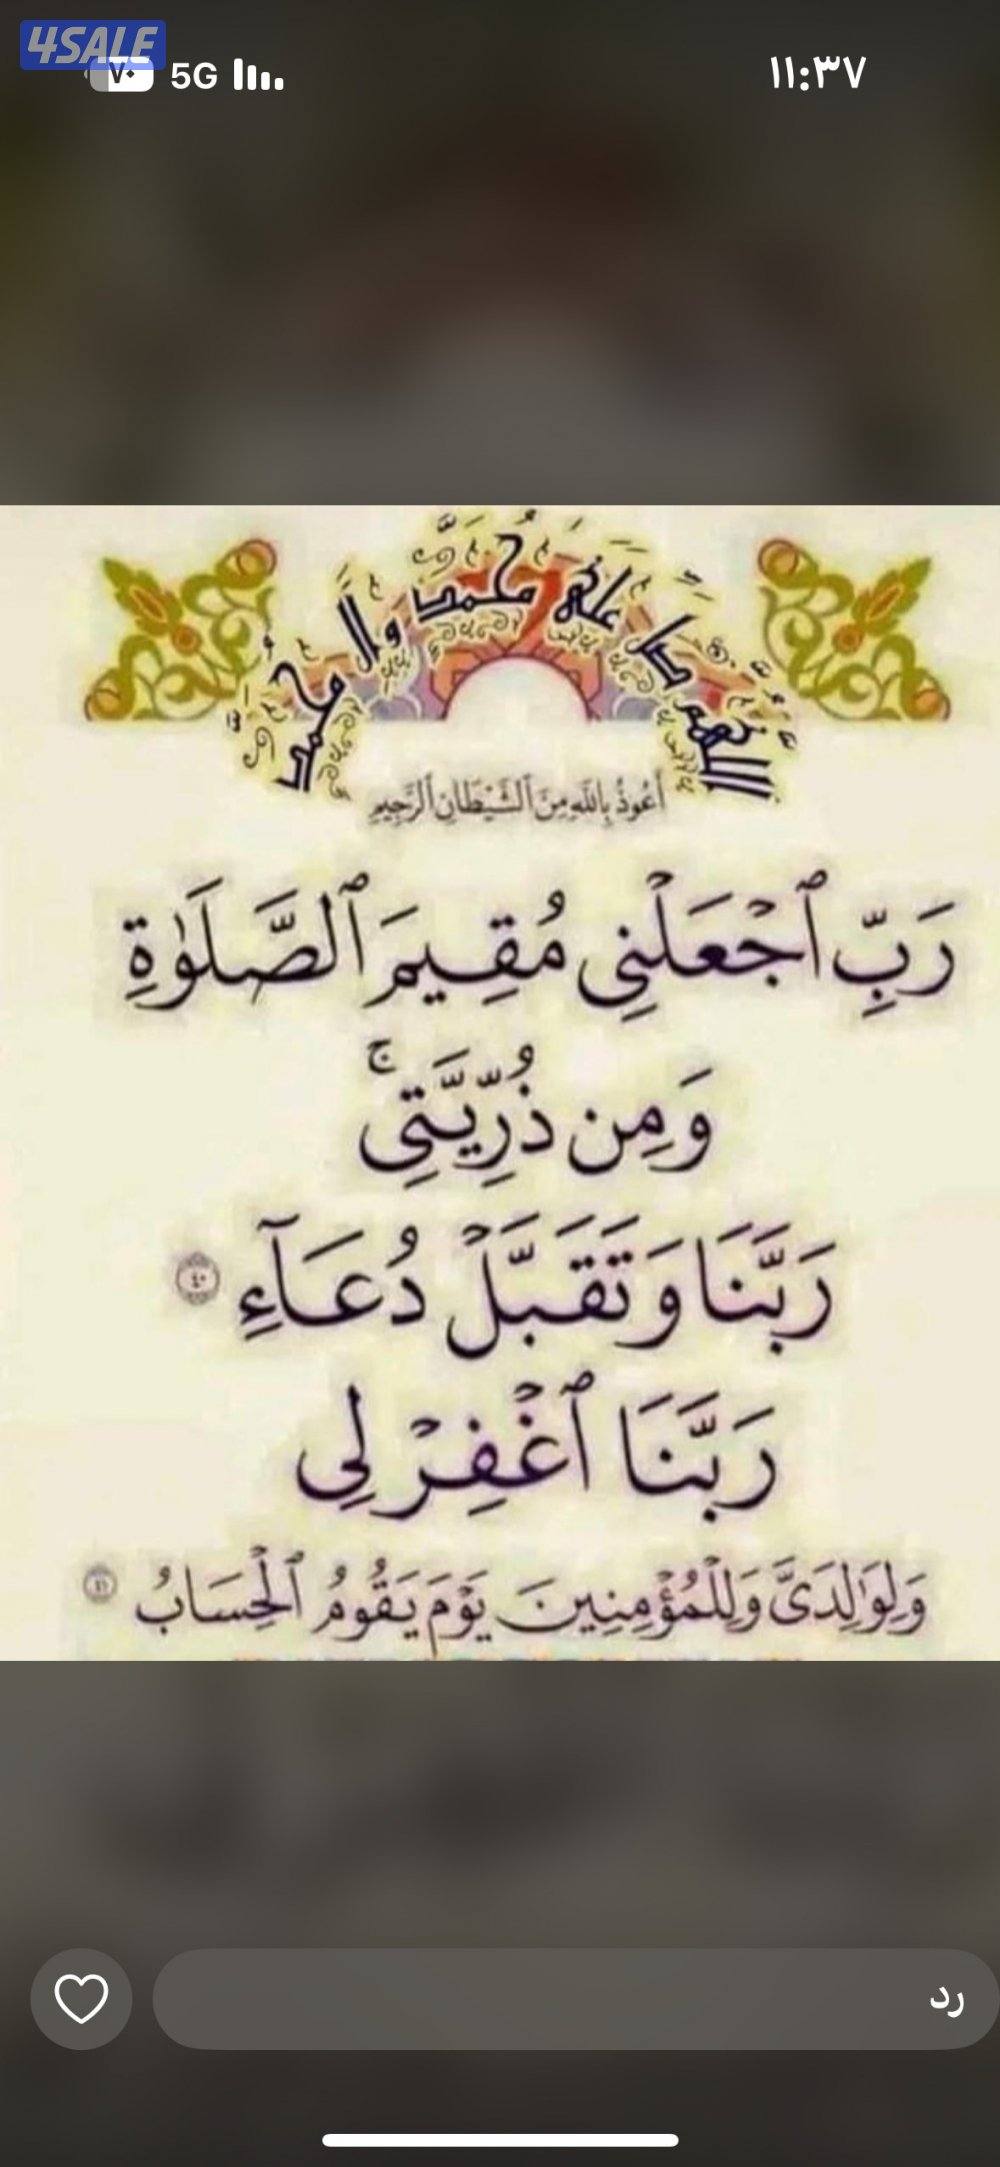 4SALE
٧٠ 5G ١١:٣٧
اللهم صل على محمد وآل محمد
أَعُوذُ بِاللَّهِ مِنَ ٱلشَّيْطَانِ ٱلرَّجِيمِ
رَبِّ ٱجْعَلْنِى مُقِيمَ ٱلصَّلَوٰةِ
وَمِن ذُرِّيَّتِى ۚ
رَبَّنَا وَتَقَبَّلْ دُعَآءِ ٤٠
رَبَّنَا ٱغْفِرْ لِى
وَلِوَٰلِدَىَّ وَلِلْمُؤْمِنِينَ يَوْمَ يَقُومُ ٱلْحِسَابُ ٤١
رد